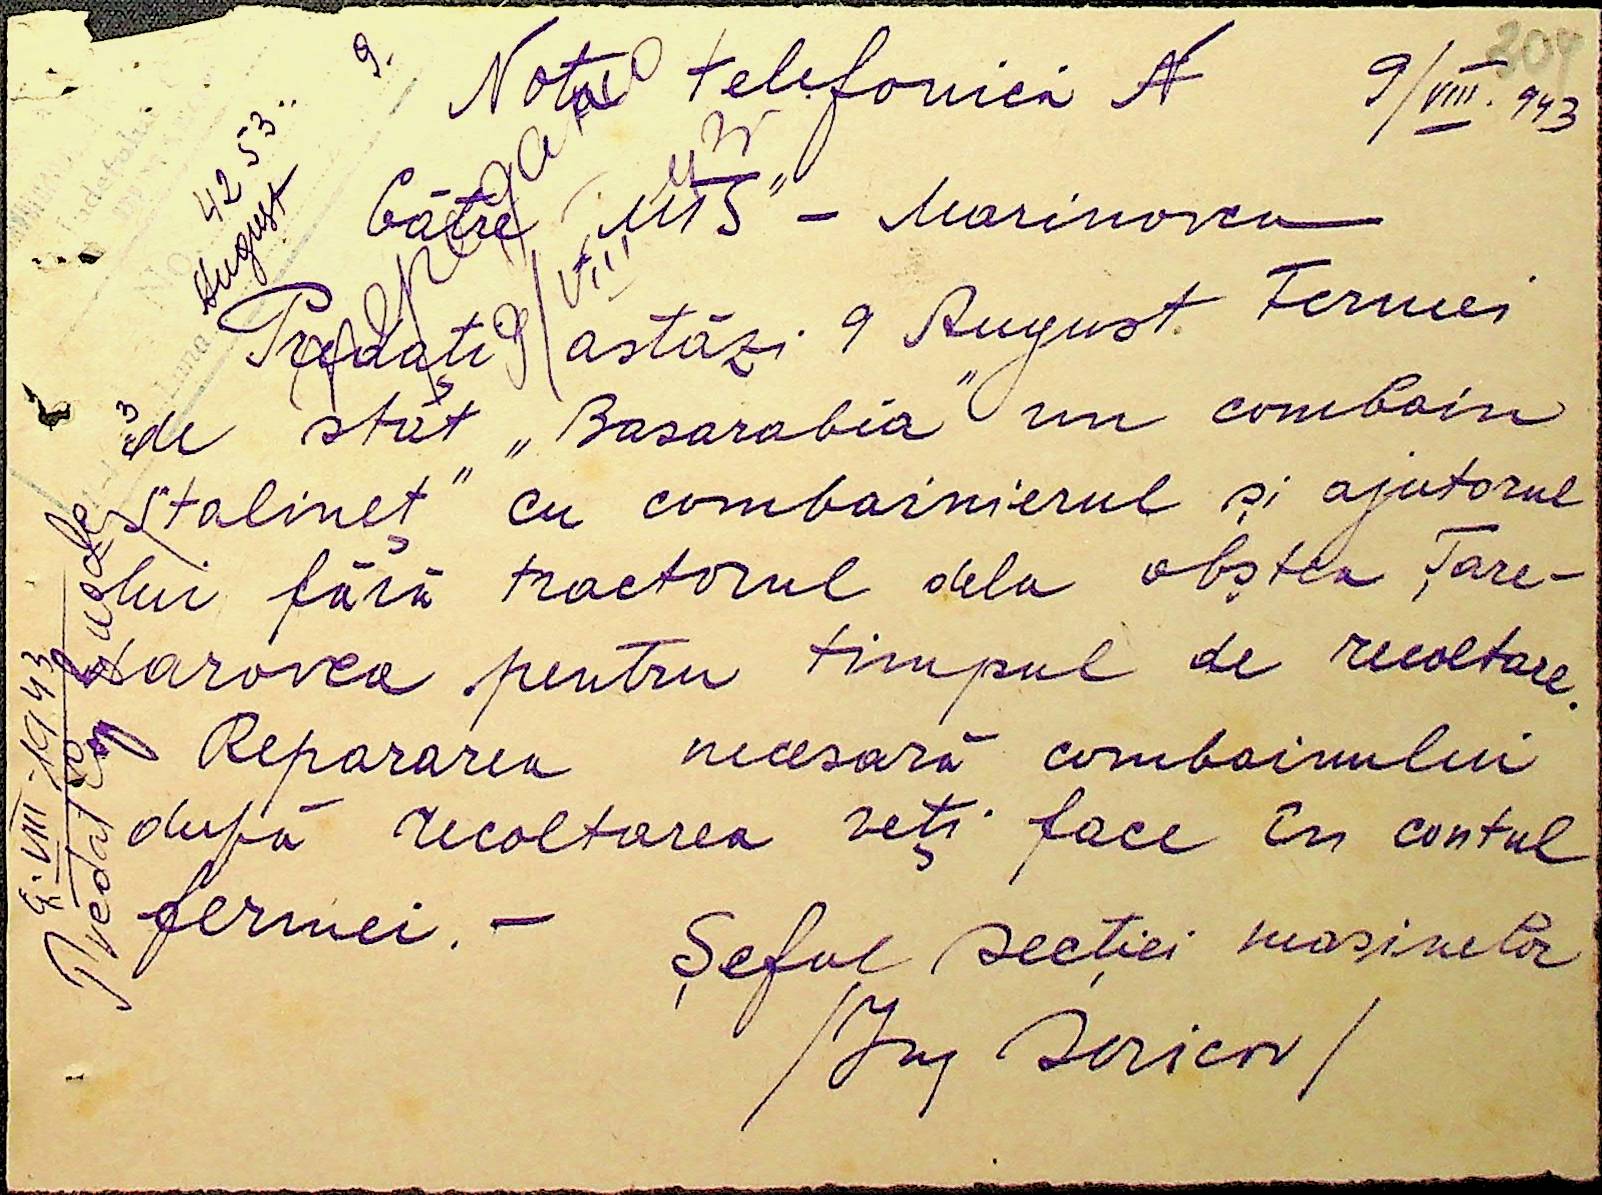 304
9.
Notă telefonică N 9/VIII. 943
4253
August
Către „MTS” – Marinovca
9/VIII
Predați astăzi 9 August Fermei
de stat „Basarabia” un combain
„Stalineț” cu combainierul și ajutorul
lui fără tractorul dela obștea Țare-
darovca pentru timpul de recoltare.
Repararea necesară combainului
după recoltarea veți face în contul
fermei. –
Șeful secției mașinelor
/Ing Soricov/
9. VIII - 1943
Predat